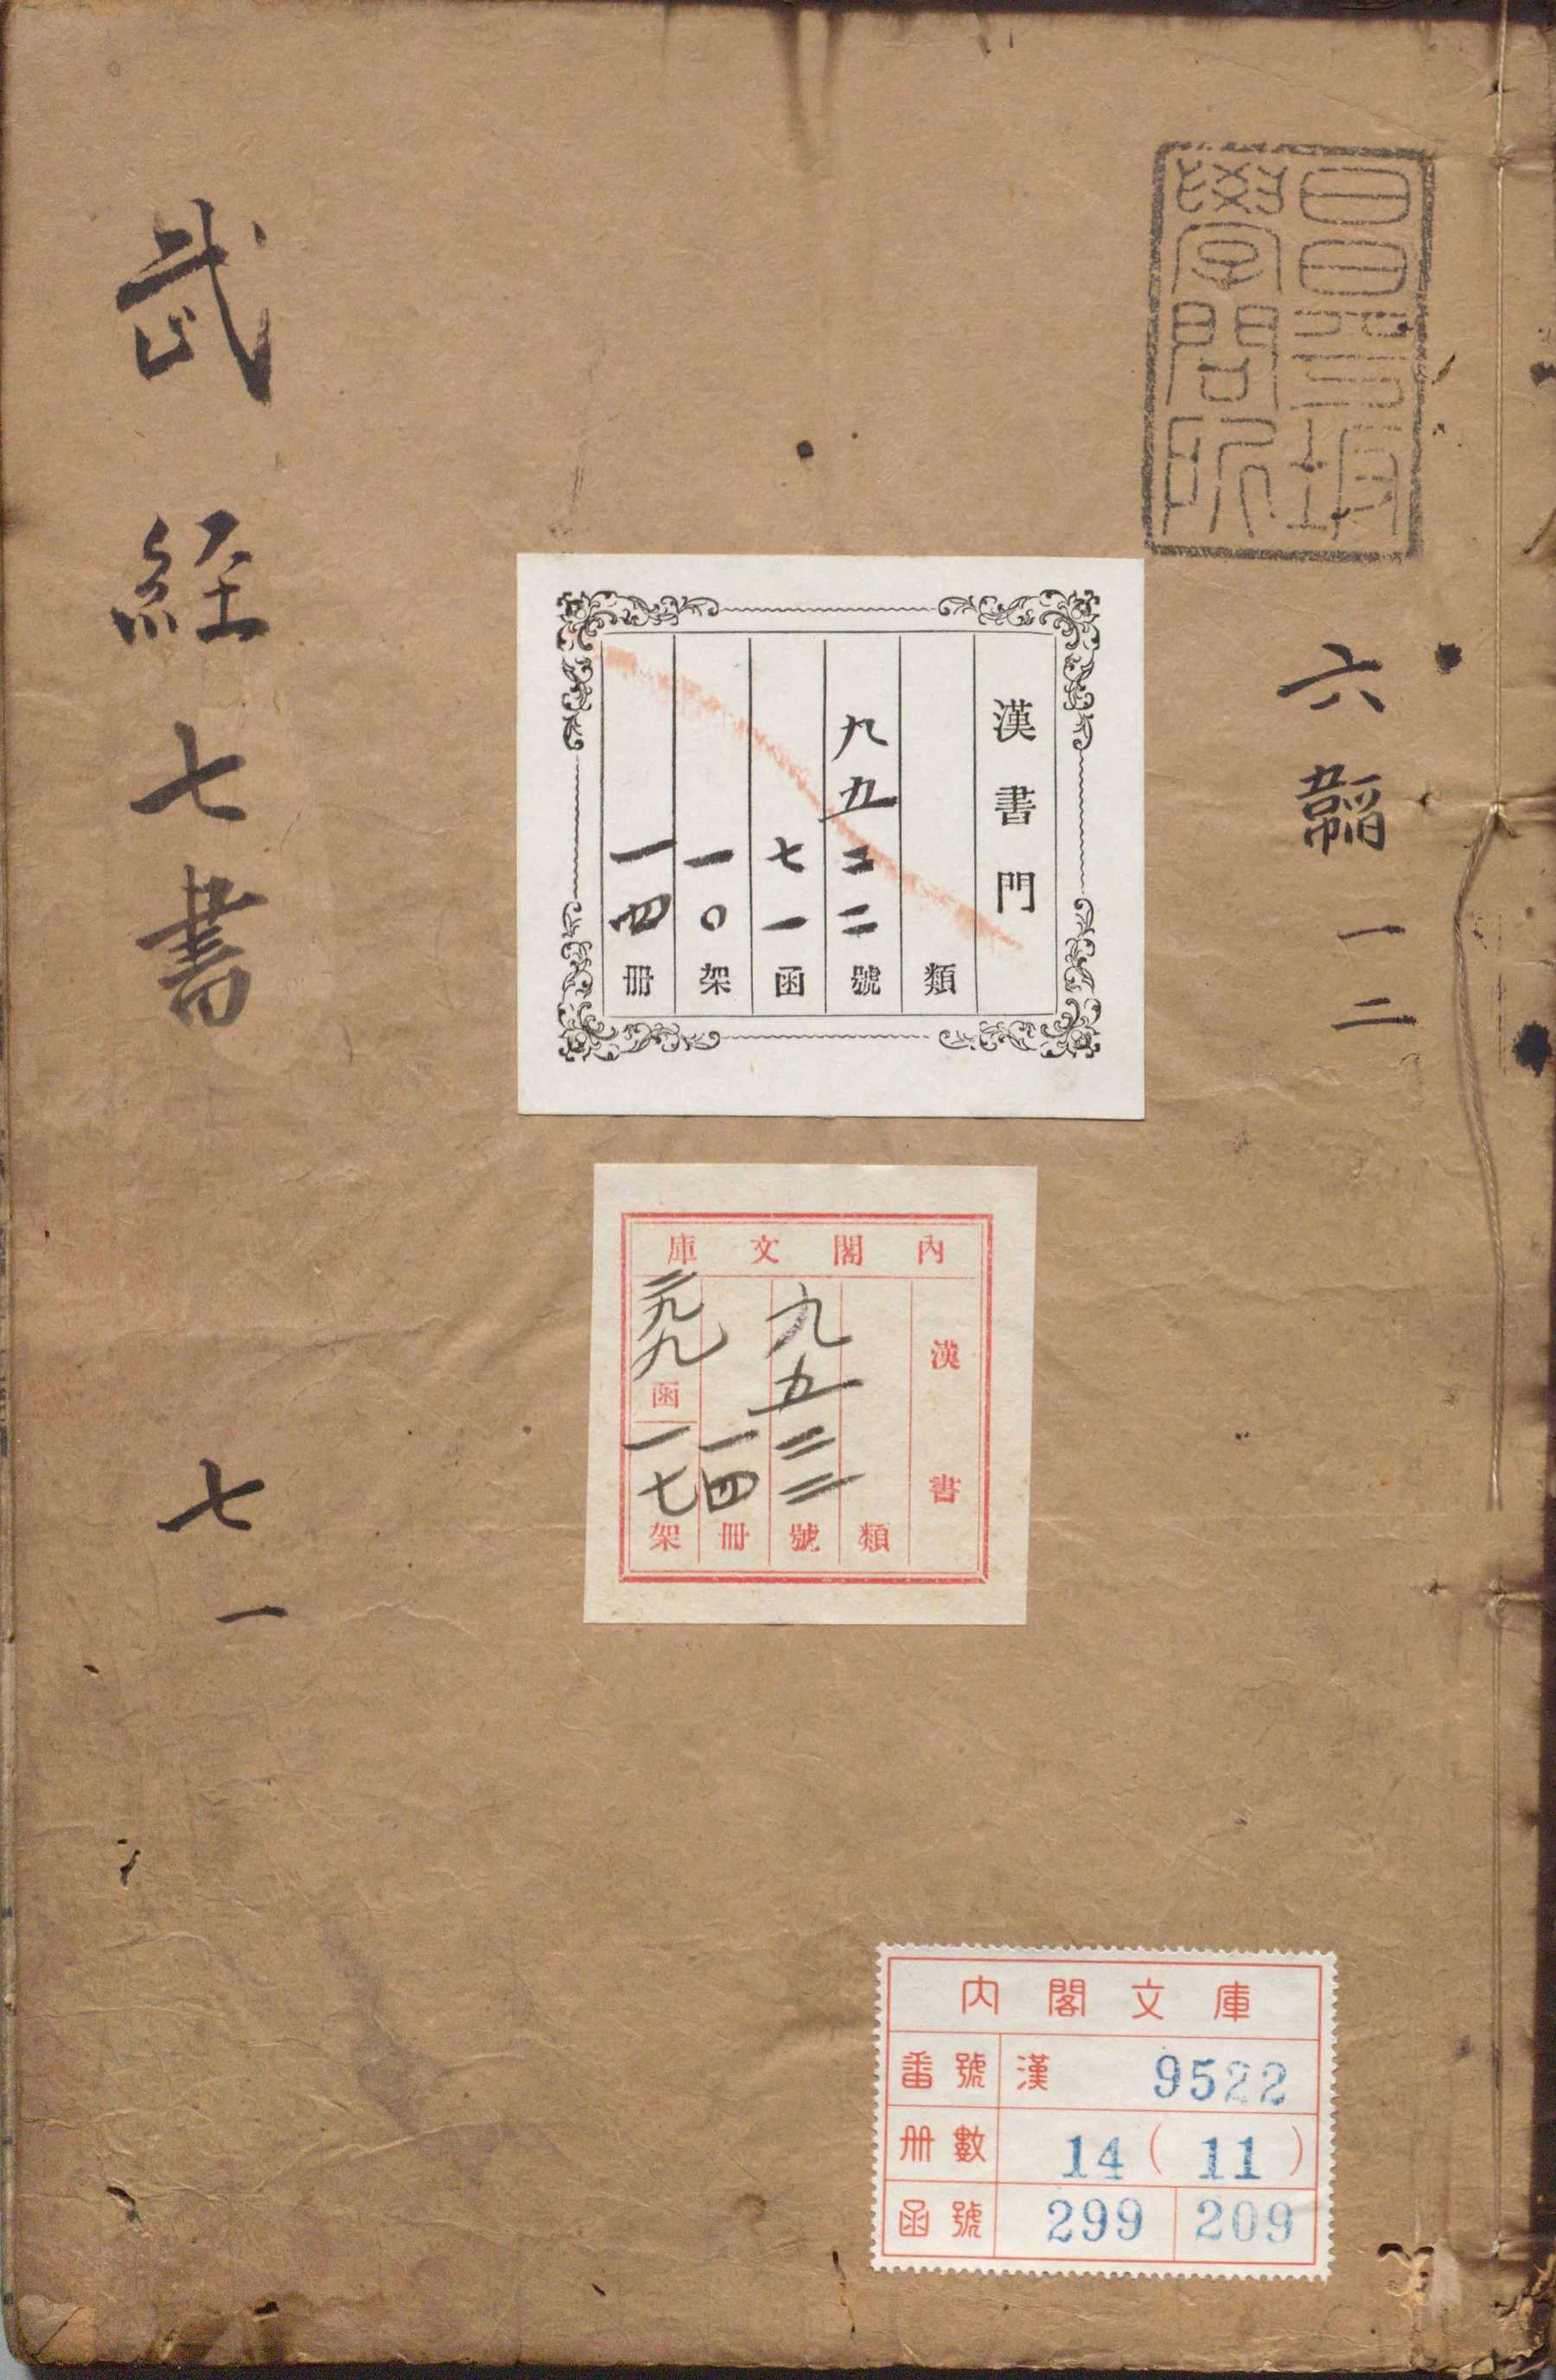 昌平坂
學問所
六韜 一 二
武経七書 七 一
漢書門
類
九五二二號
七一函
一〇架
一四冊
內閣文庫
漢書
類
九五二二號
一四冊
二九九函
一七架
内閣文庫
番號 漢 9522
冊數 14(11)
函號 299 209